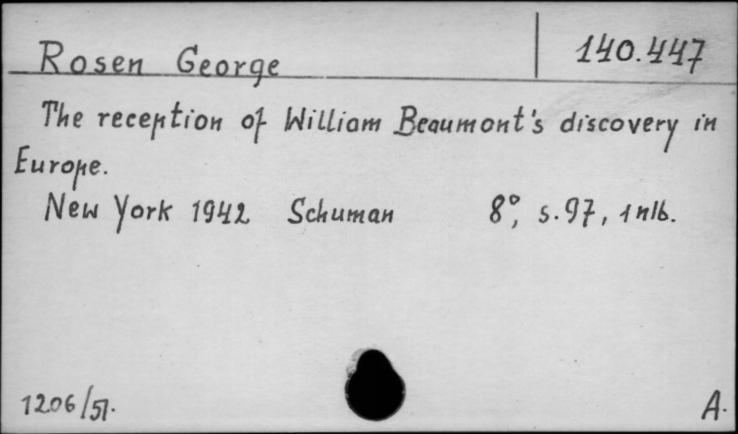 Rosen George 140.447
The reception of William Beaumont's discovery in
Europe.
New York 1942 Schuman 8°, s.97, 1 nlb.
1206/51.
A.